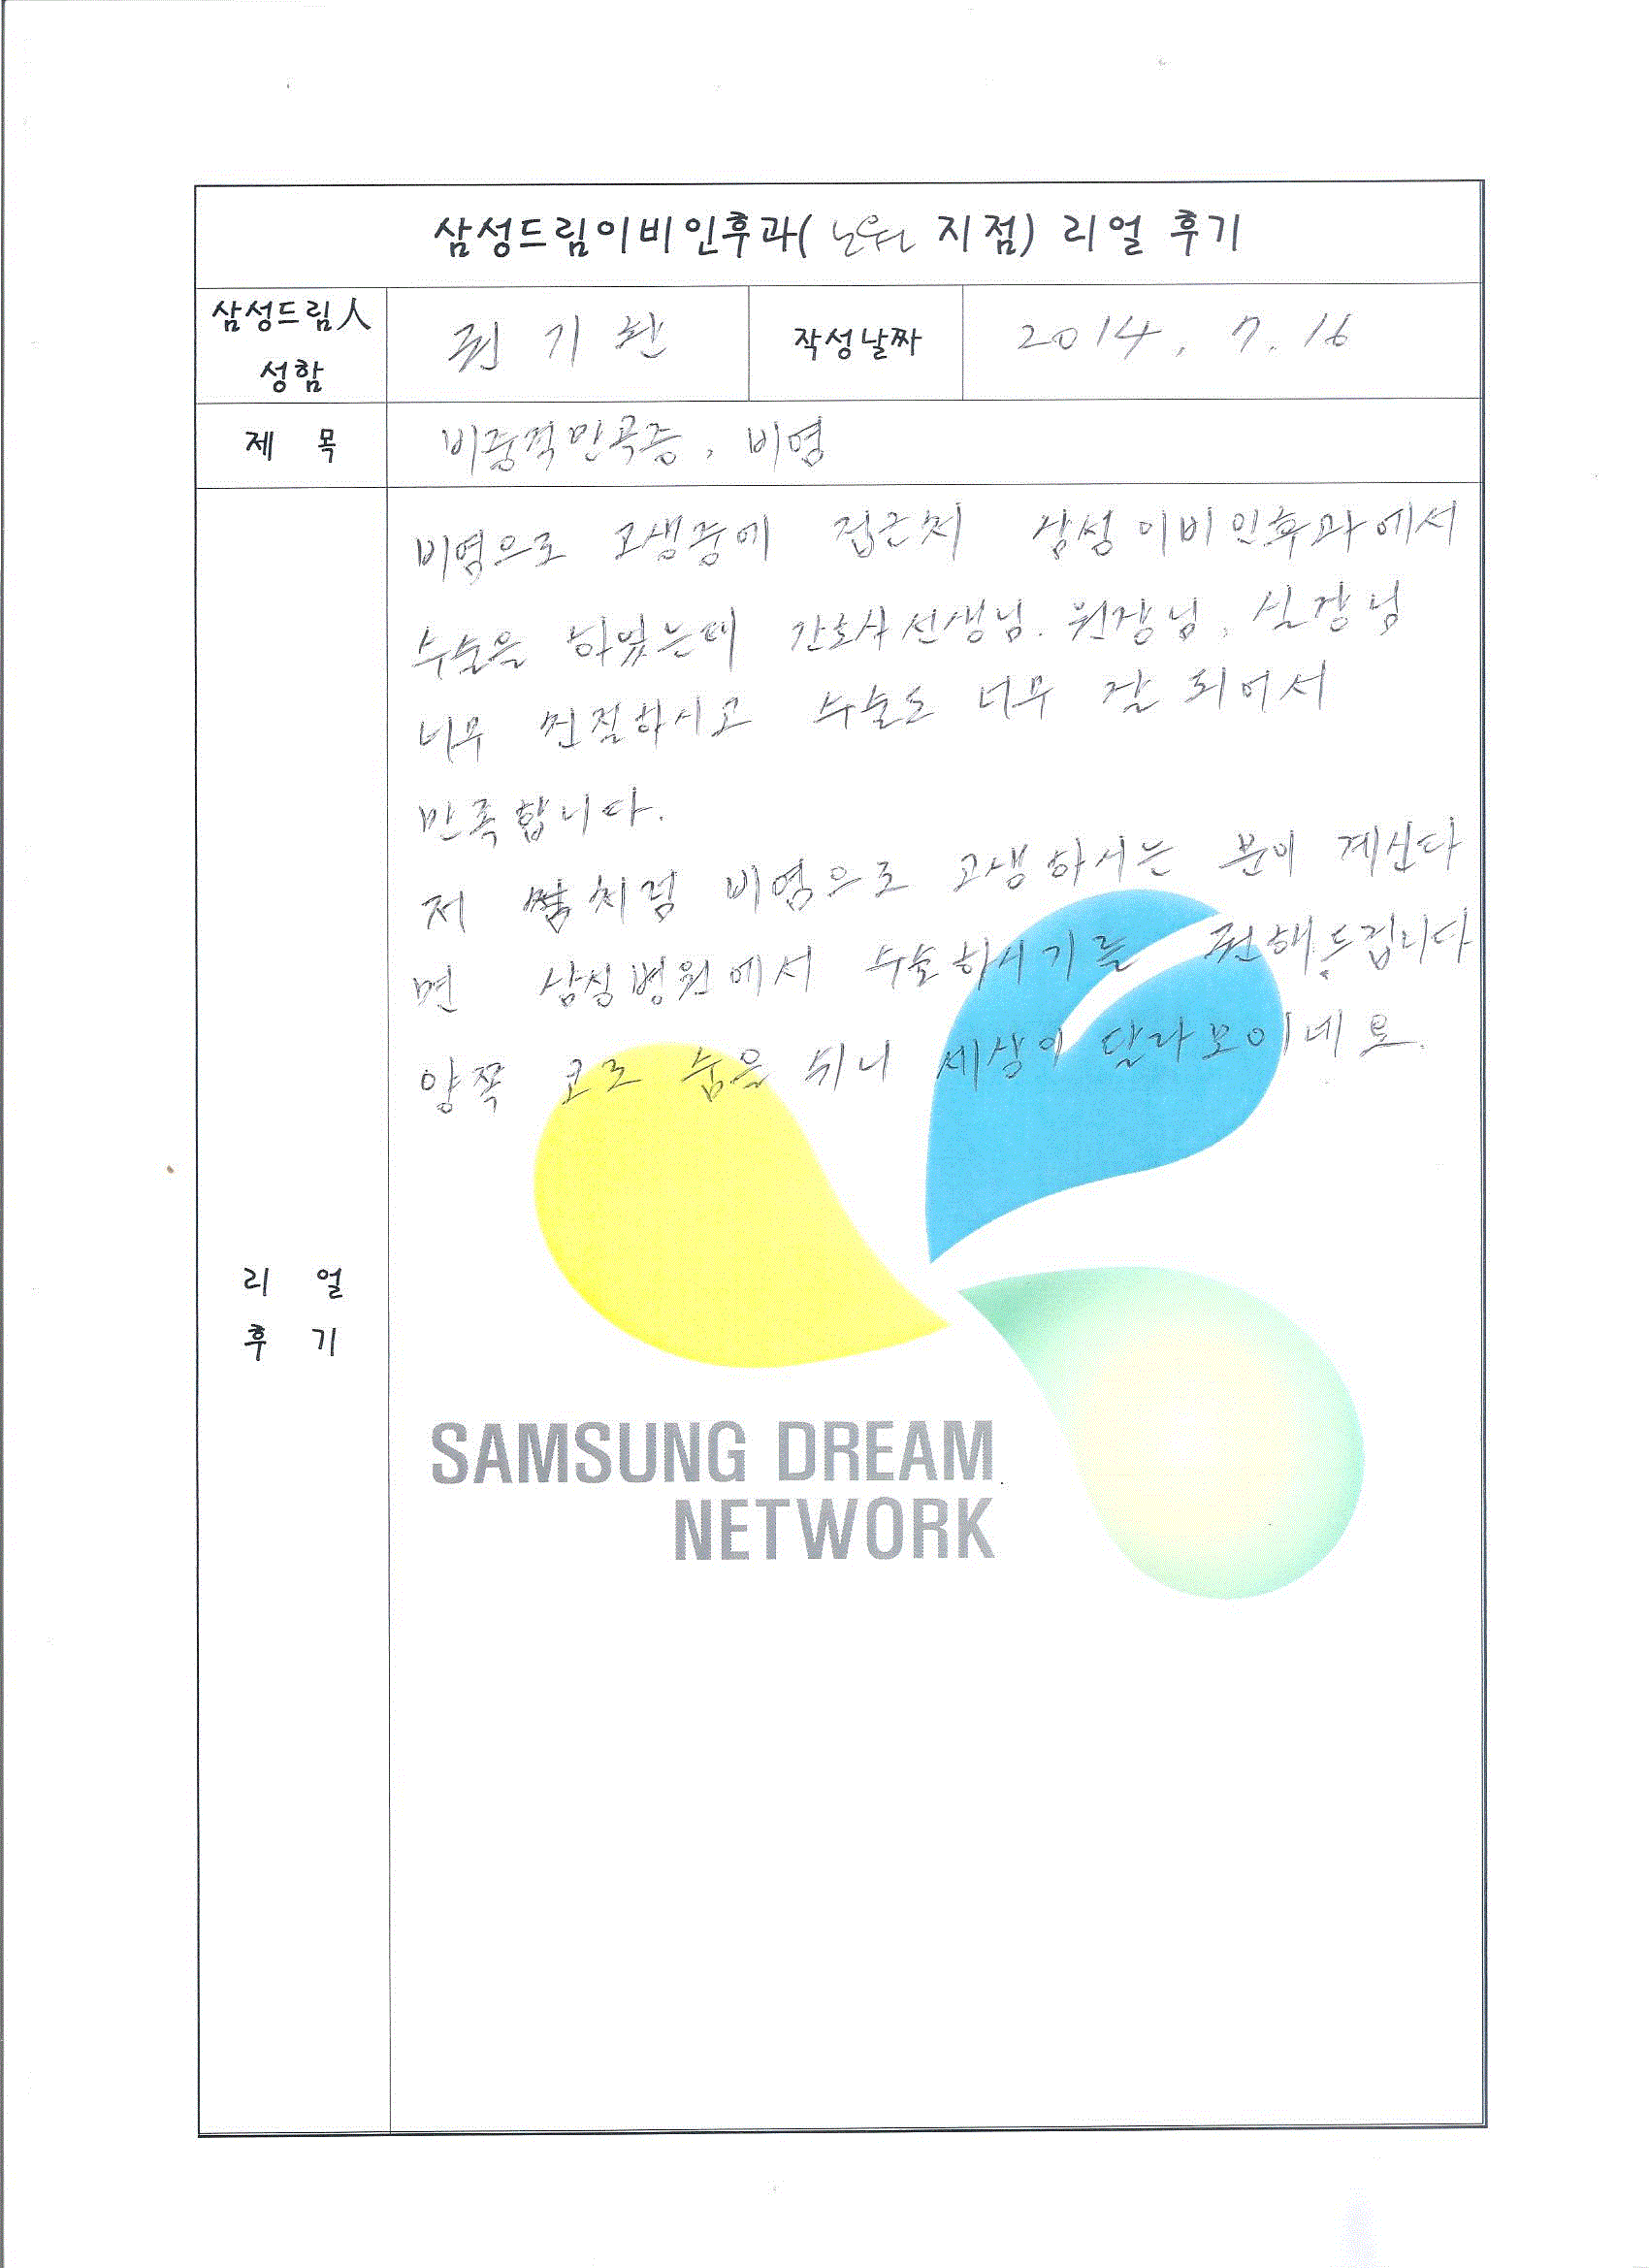 삼성드림이비인후과( 노원 지점) 리얼 후기
삼성드림人
성함
권 기
작성날짜
2014. 7. 16
제 목
비중격만곡증, 비염
비염으로 고생중에 집근처 삼성이비인후과에서
수술을 하였는데 간호사선생님. 원장님, 실장님
너무 친절하시고 수술도 너무 잘 되어서
만족합니다.
저 처럼 비염으로 고생하시는 분이 계신다
면 삼성병원에서 수술하시기를 권해드립니다
양쪽 코로 숨을 쉬니 세상이 달라보이네요.
리 얼
후 기
SAMSUNG DREAM
NETWORK